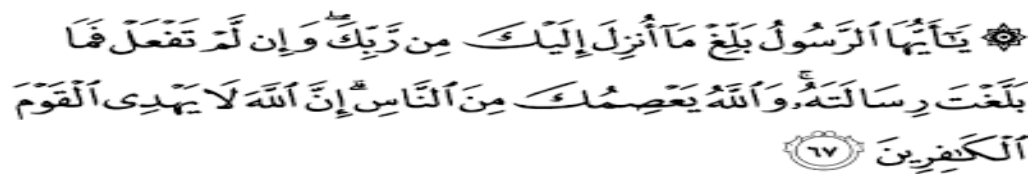 ۞ يَٰٓأَيُّهَا ٱلرَّسُولُ بَلِّغْ مَآ أُنزِلَ إِلَيْكَ مِن رَّبِّكَ ۖ وَإِن لَّمْ تَفْعَلْ فَمَا
بَلَّغْتَ رِسَالَتَهُۥ ۚ وَٱللَّهُ يَعْصِمُكَ مِنَ ٱلنَّاسِ ۗ إِنَّ ٱللَّهَ لَا يَهْدِى ٱلْقَوْمَ
ٱلْكَٰفِرِينَ ٦٧